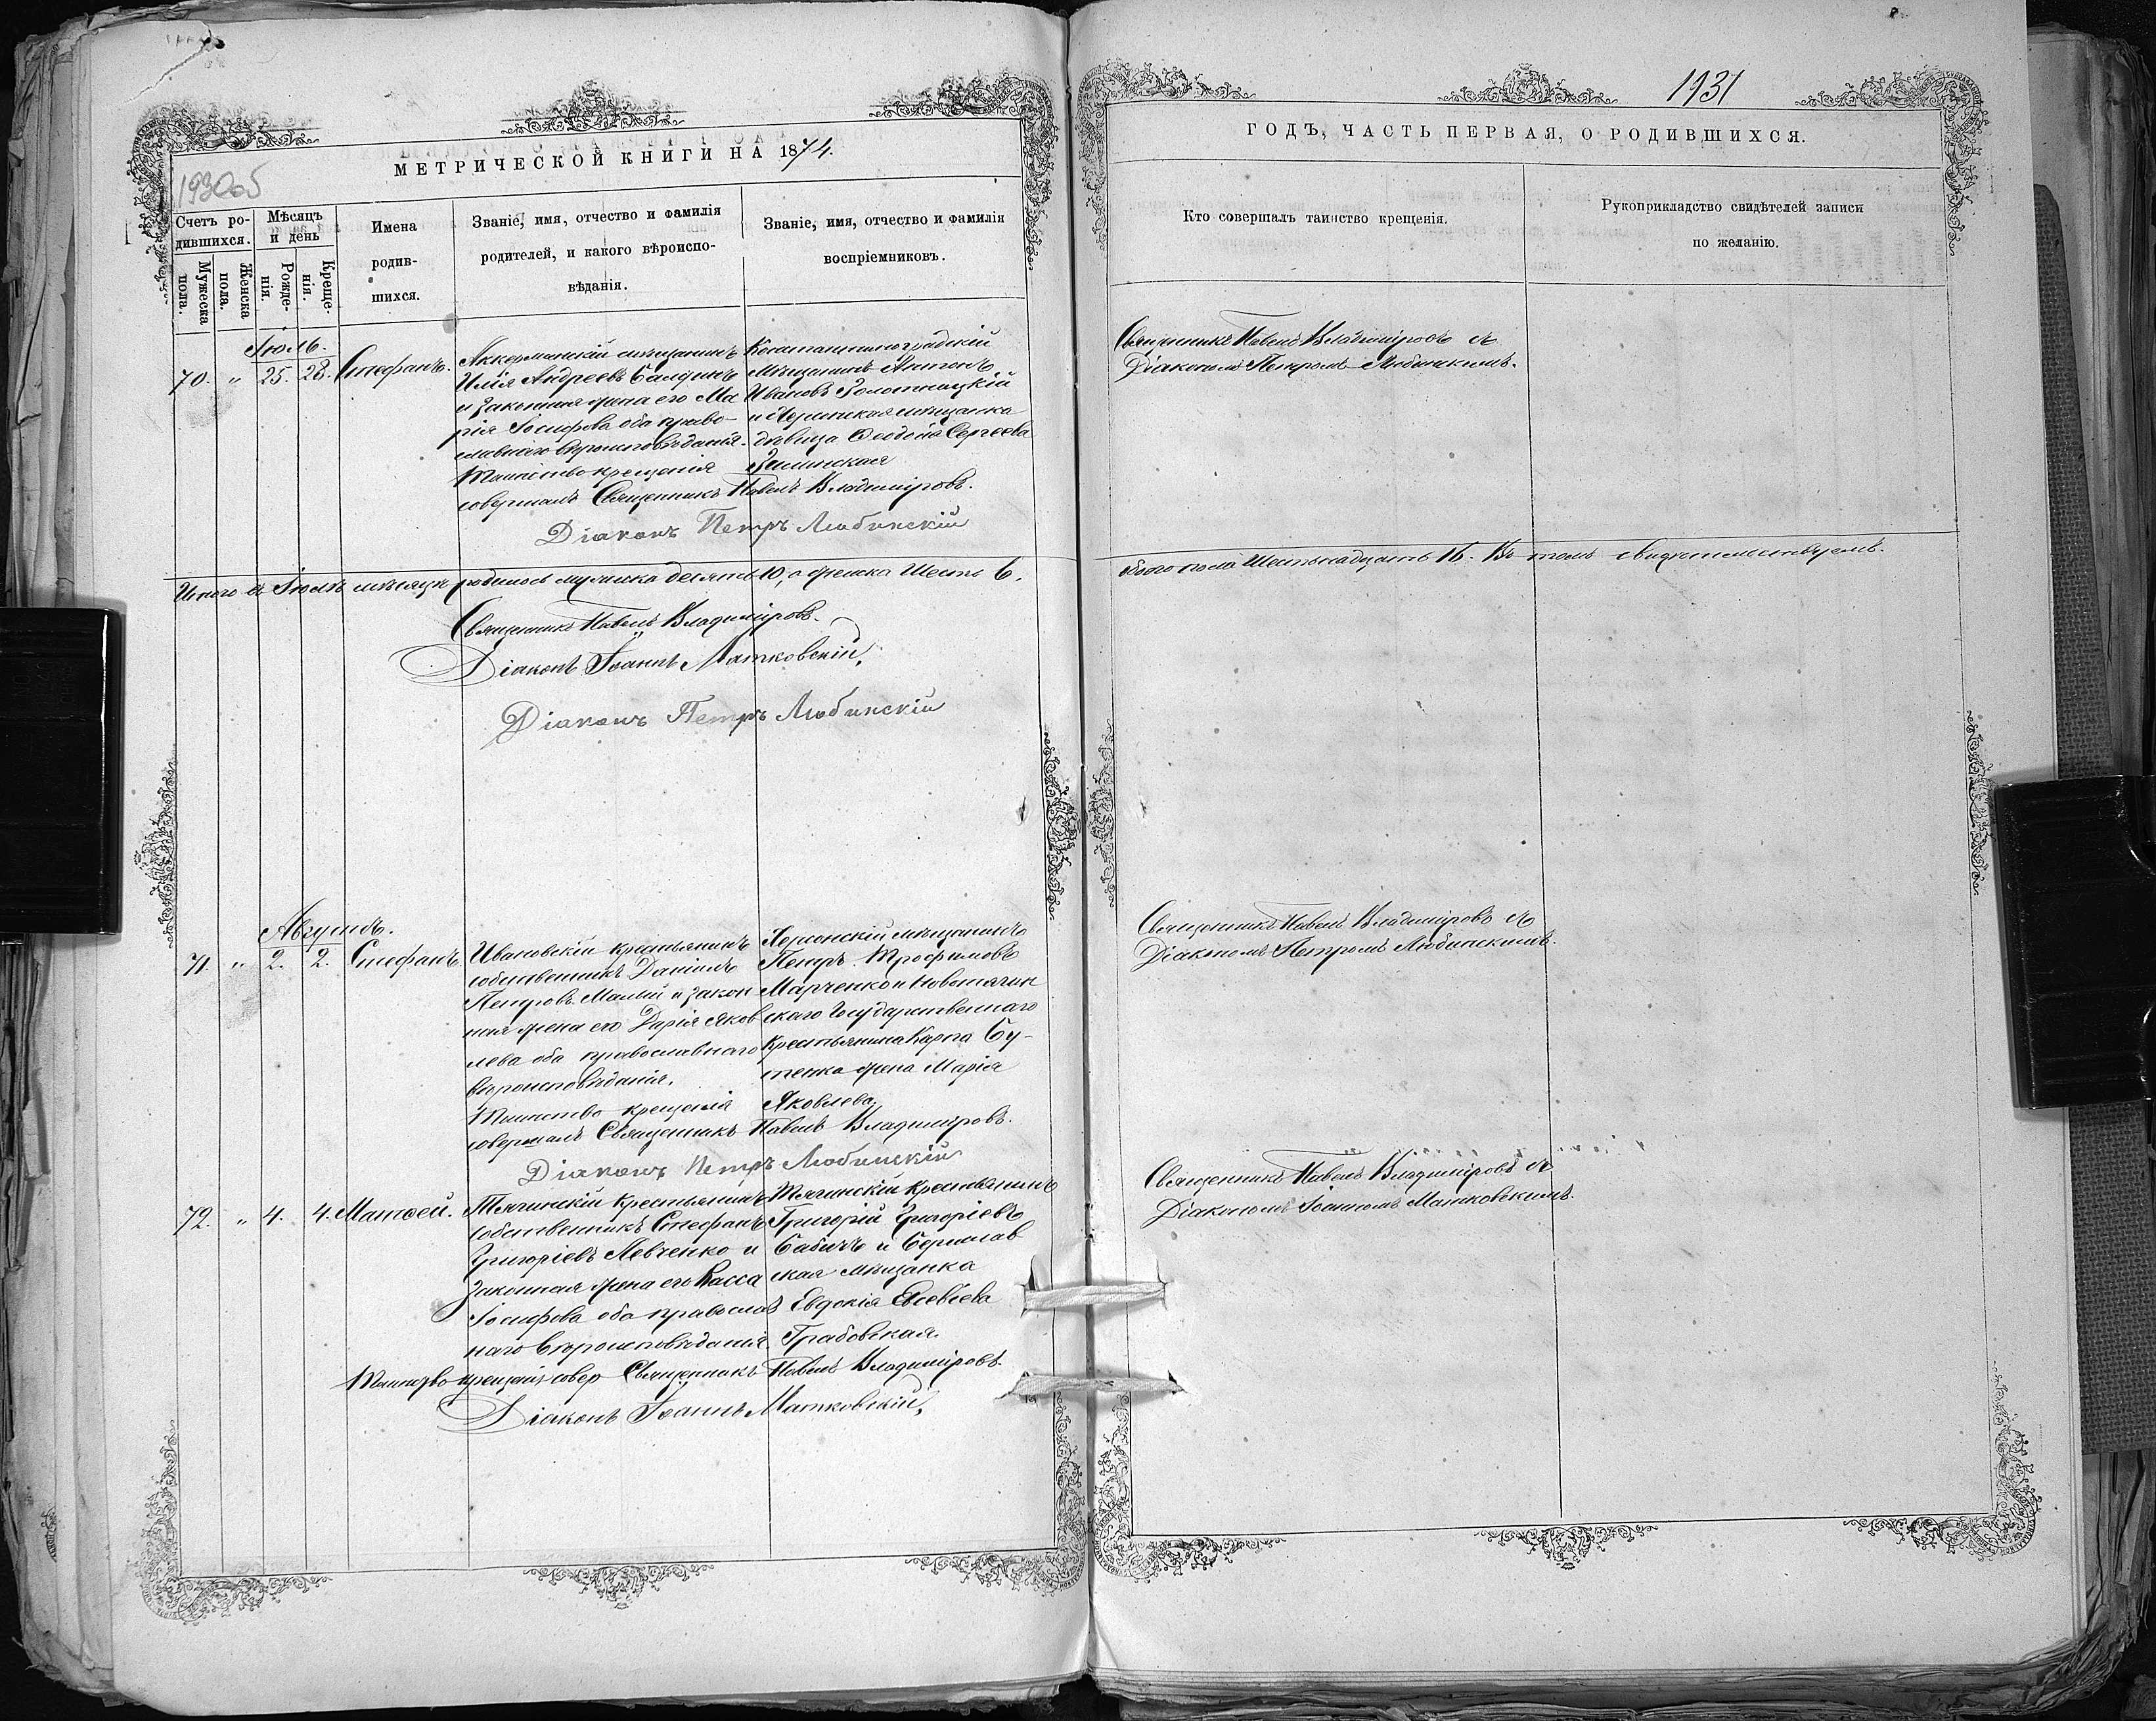 1930об
МЕТРИЧЕСКОЙ КНИГИ НА 1874.
Счетъ родившихся.
Мужеска пола.
Женска пола.
Мѣсяцъ и день
Рожденія.
Крещенія.
Имена родившихся.
Званіе, имя, отчество и фамилія
родителей, и какого вѣроиспо-
вѣданія.
Званіе, имя, отчество и фамилія
воспріемниковъ.
Іюль.
70. " 25. 28. Стефанъ.
Аккерманскій мѣщанинъ
Илія Андреевъ
и законная жена его Ма
рія Іосифова оба право-
славнаго вѣроисповѣданія.
Константиноградскій
Мѣщанинъ Антонъ
Ивановъ
и Херсонская мѣщанка
дѣвица Ѳеодосія Сергеева
Таинство крещенія
совершалъ Священникъ Павелъ Владиміровъ.
Діаконъ Петръ Любинскій
Итого въ Іюлѣ мѣсяцѣ родилось мужеска десять 10, а женска Шесть 6.
Священникъ Павелъ Владиміровъ.
Діаконъ Іоаннъ Матковскій,
Діаконъ Петръ Любинскій
Августъ.
71. " 2. 2. Стефанъ.
Ивановскій крестьянинъ
собственникъ Даніилъ
Петровъ Малый и закон
ная жена его Дарія Яков
лева оба православнаго
вѣроисповѣданія.
Херсонскій мѣщанинъ
Петръ Трофимовъ
Марченко и Новотягин
скаго Государственнаго
крестьянина Карпа Бу-
тенка жена Марія
Яковлева
Таинство крещенія
совершалъ Священникъ Павелъ Владиміровъ.
Діаконъ Петръ Любинскій
72. " 4. 4. Матѳей.
Тягинскій крестьянинъ
собственникъ Стефанъ
Григоріевъ Левченко и
законная жена его Васса
Іосифова оба православ
наго вѣроисповѣданія.
Тягинскій крестьянинъ
Григорій Григоріевъ
Бабичъ и Берислав
ская мѣщанка
Евдокія Евсевіева
Грабовская.
Таинство крещенія совер Священникъ Павелъ Владиміровъ.
Діаконъ Іоаннъ Матковскій,
1931
ГОДЪ, ЧАСТЬ ПЕРВАЯ, О РОДИВШИХСЯ.
Кто совершалъ таинство крещенія.
Рукоприкладство свидѣтелей записи
по желанію.
Священникъ Павелъ Владиміровъ съ
Діакономъ Петромъ Любинскимъ.
обоего пола Шестьнадцать 16. Въ томъ свидѣтельствуемъ.
Священникъ Павелъ Владиміровъ съ
Діакономъ Петромъ Любинскимъ.
Священникъ Павелъ Владиміровъ съ
Діакономъ Іоанномъ Матковскимъ.